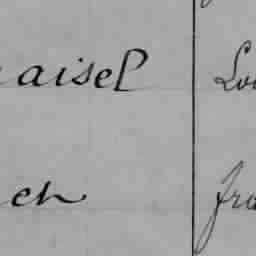 aisel Lou
ch fra